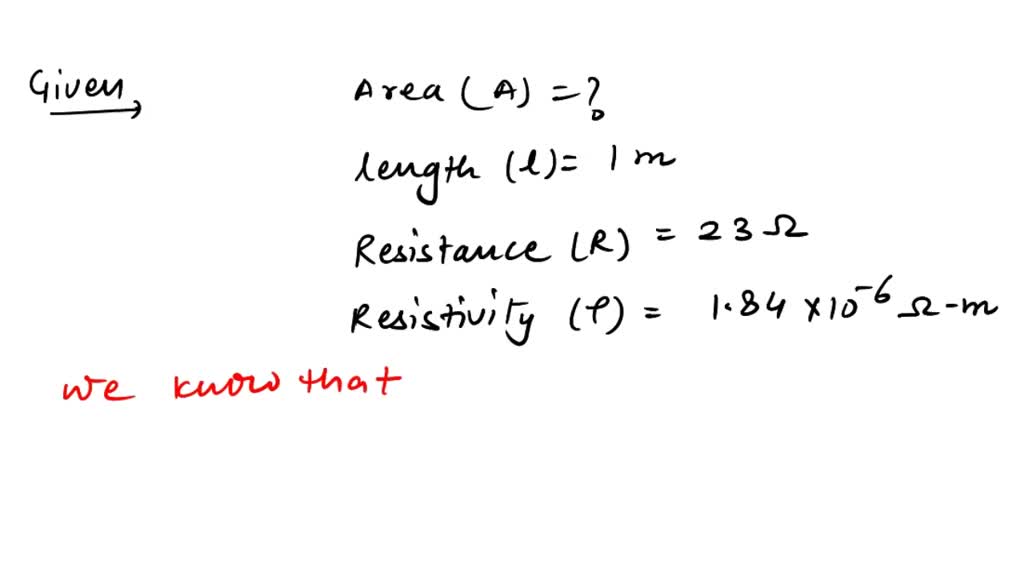 Given Area (A) = ?
length (l) = 1 m
Resistance (R) = 23 Ω
Resistivity (ρ) = 1.84 × 10⁻⁶ Ω-m
we know that